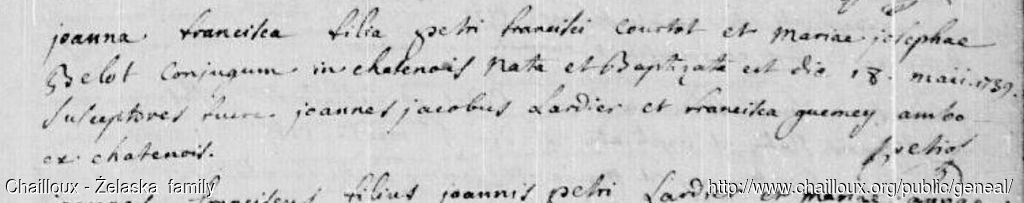 joanna francisca filia petri francisci Courtot et mariae josephae
Belot conjugum in chatenois nata et Baptizata est die 18. maii. 1739.
susceptores fuere joannes jacobus Lardier et francisca guemey ambo
ex chatenois.
joannes franciscus filius joannis petri Lardier et mariae annae
Chailloux - Żelaska family
http://www.chailloux.org/public/geneal/